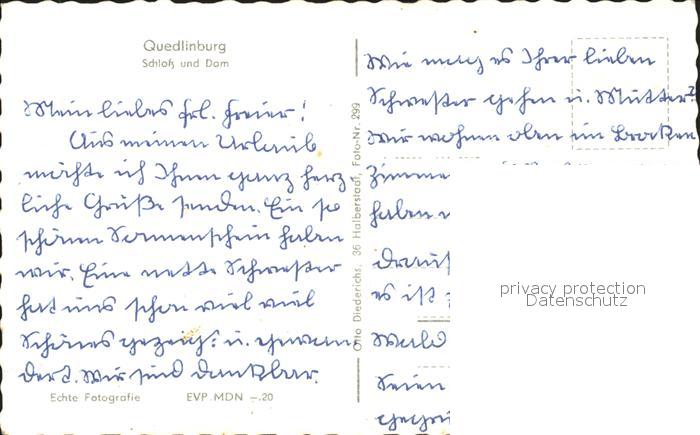 Quedlinburg
Schloß und Dom
Mein liebes Frl. Freier!
Aus meinem Urlaub
möchte ich Ihnen ganz herz
liche Grüße senden. Ein so
schönen Sonnenschein haben
wir. Eine nette Schwester
hat uns schon viel viel
Schönes gezeigt u.
Wir sind dankbar.
Echte Fotografie EVP MDN –.20
Otto Diederichs, 36 Halberstadt, Foto-Nr. 299
Wie mag es Ihrer lieben
Schwester gehen u. Mutter?
Wir wohnen oben im Brocken
Zimme
haben
es ist
Wald
Seien
privacy protection
Datenschutz